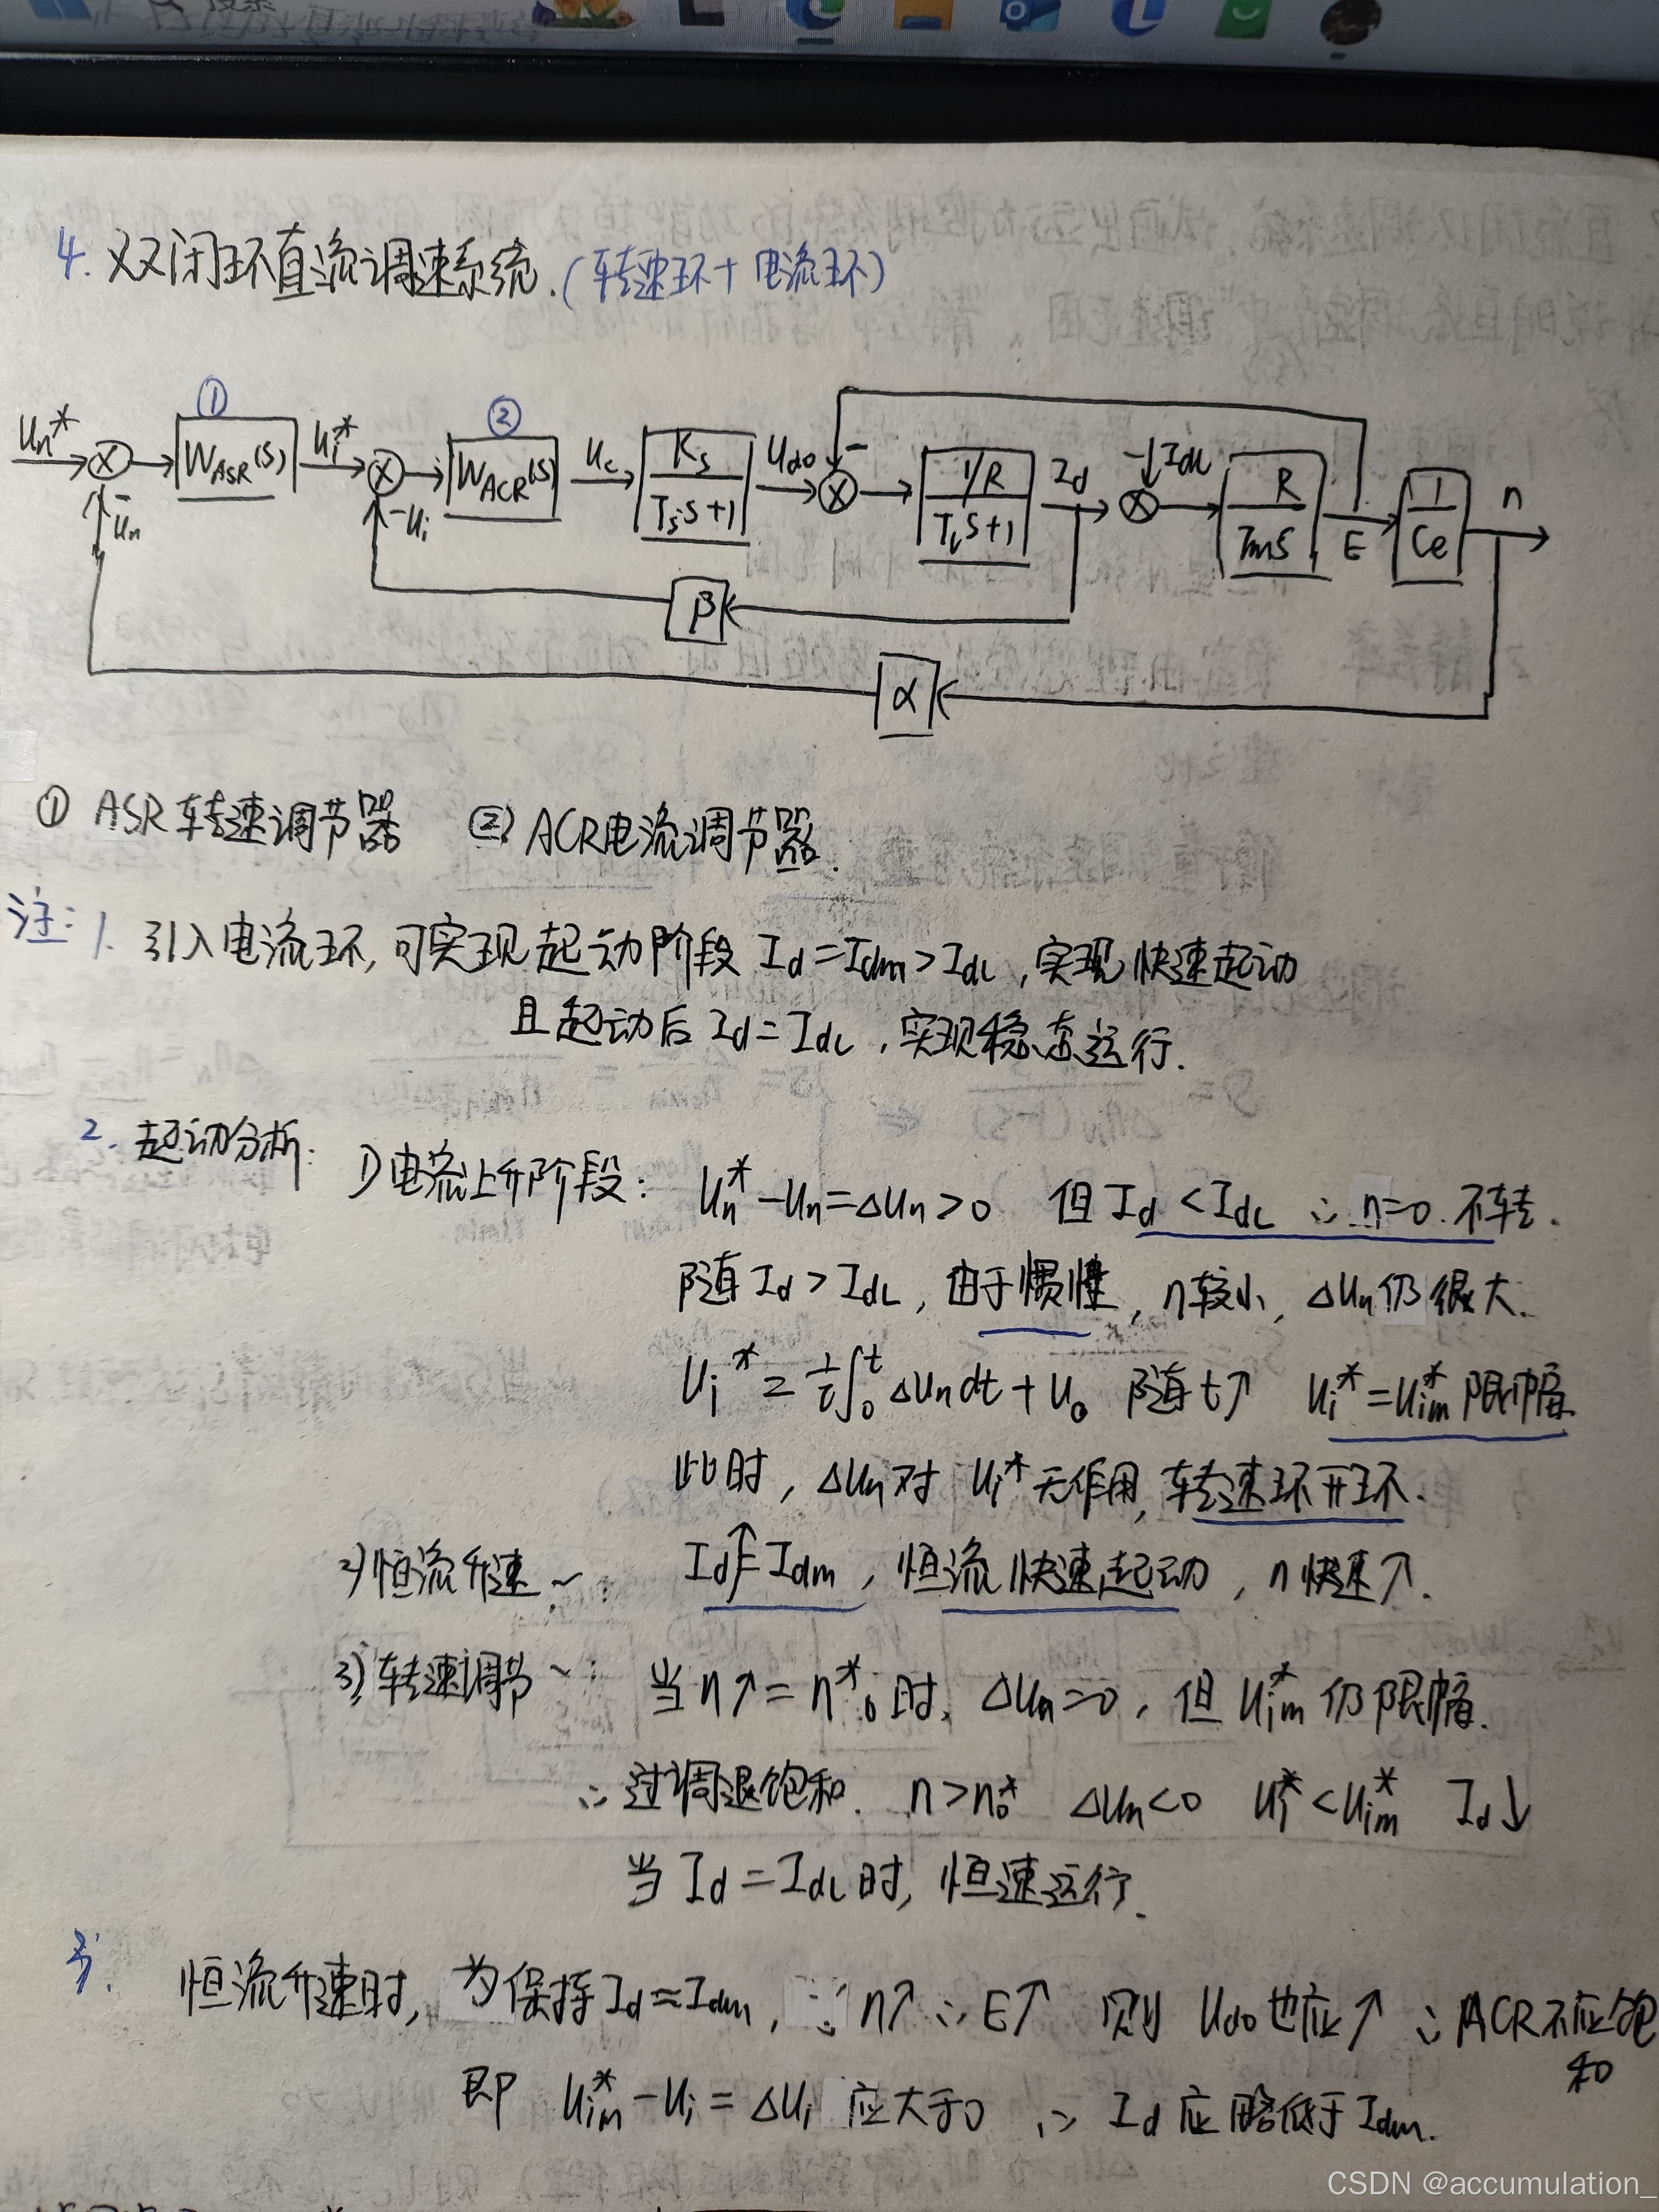 4. 双闭环直流调速系统.(转速环+电流环)
① ②
Un* WASR(s) Ui* WACR(s) Uc Ks/(Ts·s+1) Ud0 - (1/R)/(TlS+1) Id -IdL R/(TmS) E 1/Ce n
-Un -Ui
β
α
① ASR 转速调节器 ② ACR电流调节器.
注: 1. 引入电流环,可实现起动阶段 Id=Idm>IdL,实现快速起动
且起动后 Id=IdL,实现稳态运行.
2. 起动分析: 1)电流上升阶段: Un*-Un=ΔUn>0 但Id<IdL ∴n=0.不转.
随Id>IdL,由于惯性,n较小,ΔUn仍很大.
Ui*=1/τ∫0^t ΔUn dt+U0 随t↑ Ui*=Uim*限幅
此时,ΔUn对 Ui*无作用,转速环开环.
2)恒流升速~: Id↑=Idm,恒流快速起动,n快速↑.
3)转速调节~: 当n↑=n0*时,ΔUn=0,但Uim*仍限幅.
∴过调退饱和. n>n0* ΔUn<0 Ui*<Uim* Id↓
当Id=IdL时,恒速运行.
3. 恒流升速时,为保持Id≈Idm,∵n↑∴E↑ 则Ud0也应↑∴ACR不应饱
和
即 Uim*-Ui=ΔUi 应大于0 ∴Id应略低于Idm.
CSDN @accumulation_